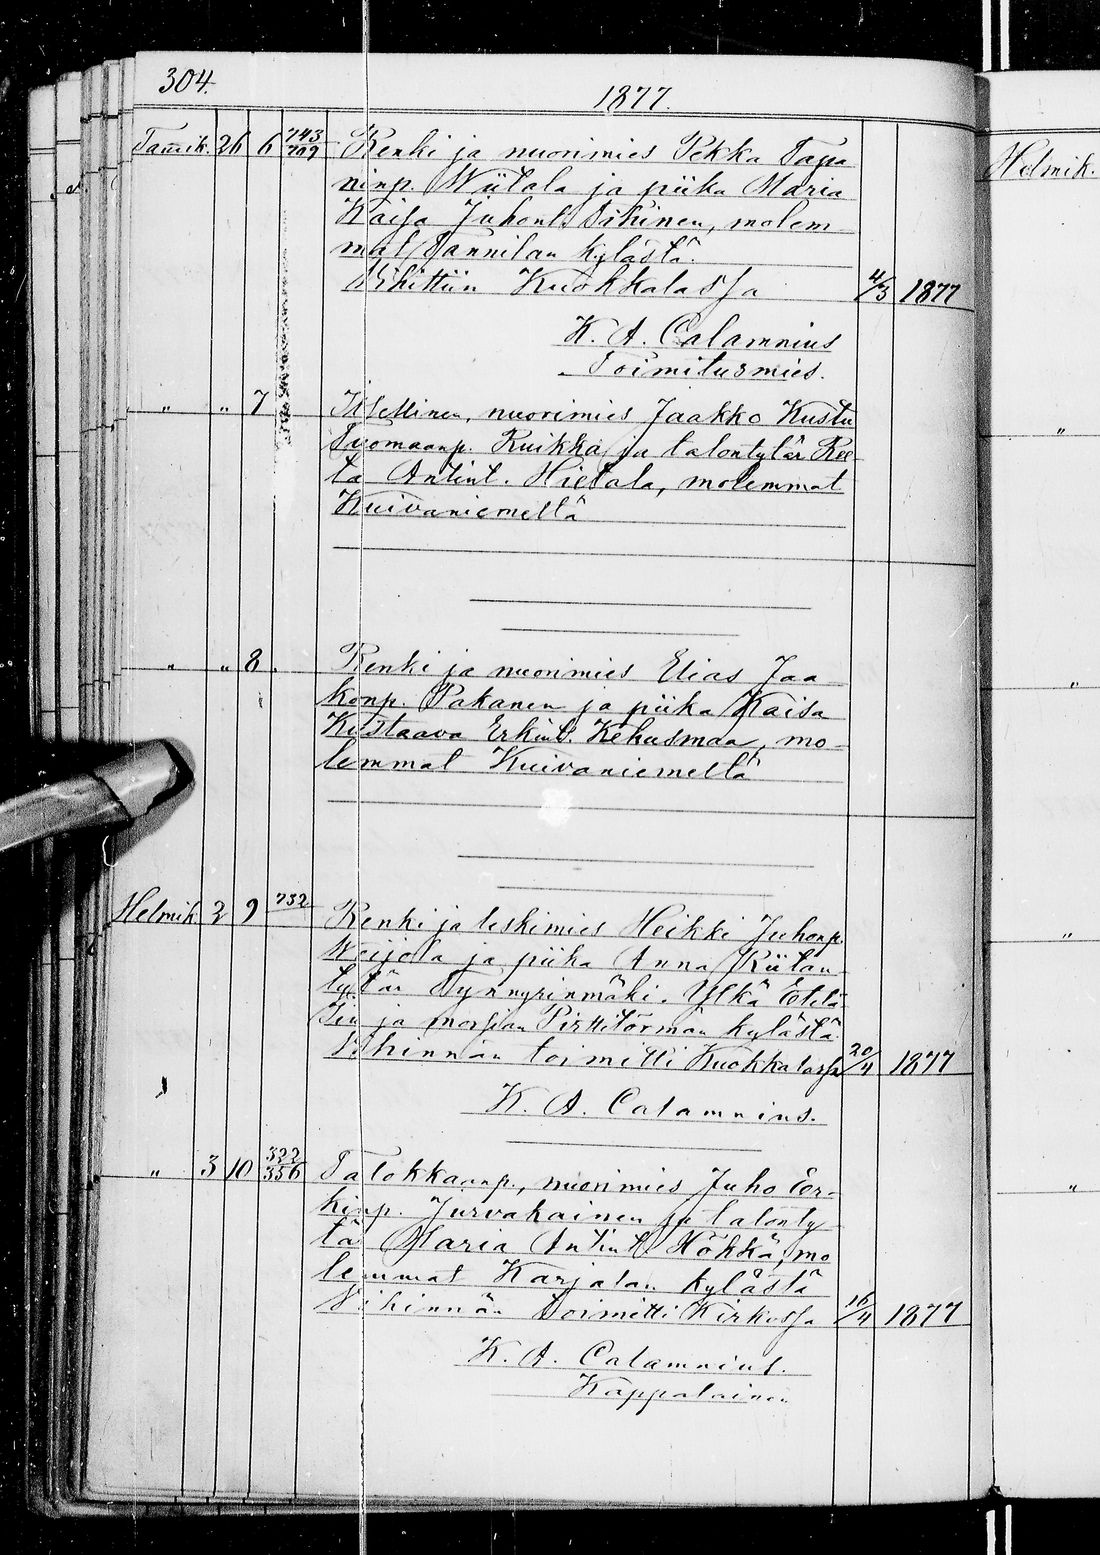 304.
1877.
Tammik. 26 6 743/709 Renki ja nuorimies Pekka Tapa
ninp. Wiitala ja piika Maria Helmik.
Kaisa Juhont. Tihinen, molem-
mat Tannilan kylästä.
Vihittiin Kuokkalassa 4/3 1877
K. A. Calamnius
Toimitusmies.
" " 7 Itsellinen, nuorimies Jaakko Kustu
Tuomaanp. Ruikka ja talontytär Ree "
ta Antint. Hietala, molemmat
Kuivaniemeltä
" " 8. Renki ja nuorimies Elias Jaa "
konp. Pakanen ja piika Kaisa
Kustaava Erkint. Kehusmaa, mo-
lemmat Kuivaniemeltä
Helmik. 2 9 732 Renki ja leskimies Heikki Juhonp.
Weijola ja piika Anna Riitan "
tytär Tynnyrinmäki. Ylkä Etelä
Iin ja morsian Pirttitörmän kylästä
Vihinnän toimitti Kuokkalassa 20/4 1877
K. A. Calamnius.
" 3 10 322/356 Talokkaanp., nuorimies Juho Er- "
kinp. Jurvakainen ja talonty
tä Maria Antint. Hökkä, mo
lemmat Karjalan kylästä
Vihinnän toimitti Kirkossa 16/4 1877
K. A. Calamnius.
Kappalainen